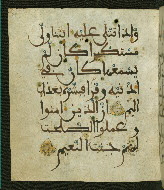 وإذا تتلى عليه ءايتنا ولى
مستكبرا كأن لم
يسمعها كأن في
أذنيه وقرا فبشره بعذاب
أليم إن الذين ءامنوا
وعملوا الصلحت
لهم جنت النعيم